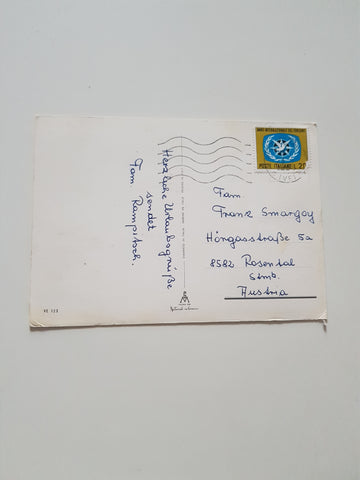 Herzliche Urlaubsgrüße
sendet
Fam. Rampitsch.
ANNO INTERNAZIONALE DEL TURISMO
POSTE ITALIANE L. 20
Fam.
Frank Smargoy
Höngasstraße 5a
8582 Rosental
Stmk.
Austria
VE 123